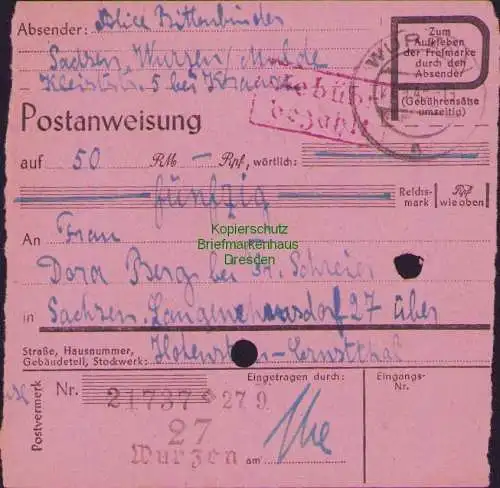 Absender: Alice Bittenbinder
Sachsen, Wurzen/Mulde
Kleiststr. 5 bei
Zum
Aufkleben
der Freimarke
durch den
Absender
(Gebührensätze
umseitig)
WUR
Gebühr
bezahlt
a
Postanweisung
auf 50 RM — Rpf, wörtlich:
fünfzig
Reichs-
mark
Rpf
wie oben
An Frau
Kopierschutz
Briefmarkenhaus
Dresden
Dora Berg bei Fr. Schreier
in Sachsen, Langenchursdorf 27 über
Straße, Hausnummer,
Gebäudeteil, Stockwerk: Hohenstein-Ernstthal
Postvermerk
Nr. 21737 * 27 9
27
Wurzen am
Eingetragen durch:
Eingangs-
Nr.